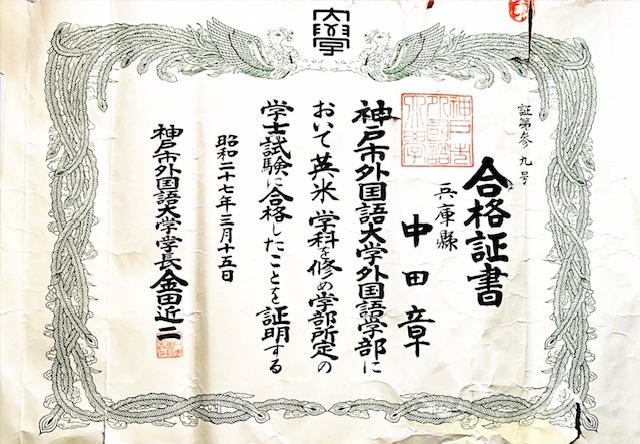 大学
証第参九号
合格証書
兵庫縣
中田章
神戸市外国語大学外国語学部に
おいて英米学科を修め学部所定の
学士試験に合格したことを証明する
昭和二十七年三月十五日
神戸市外国語大学学長金田近二
神戸市
外国語
大学